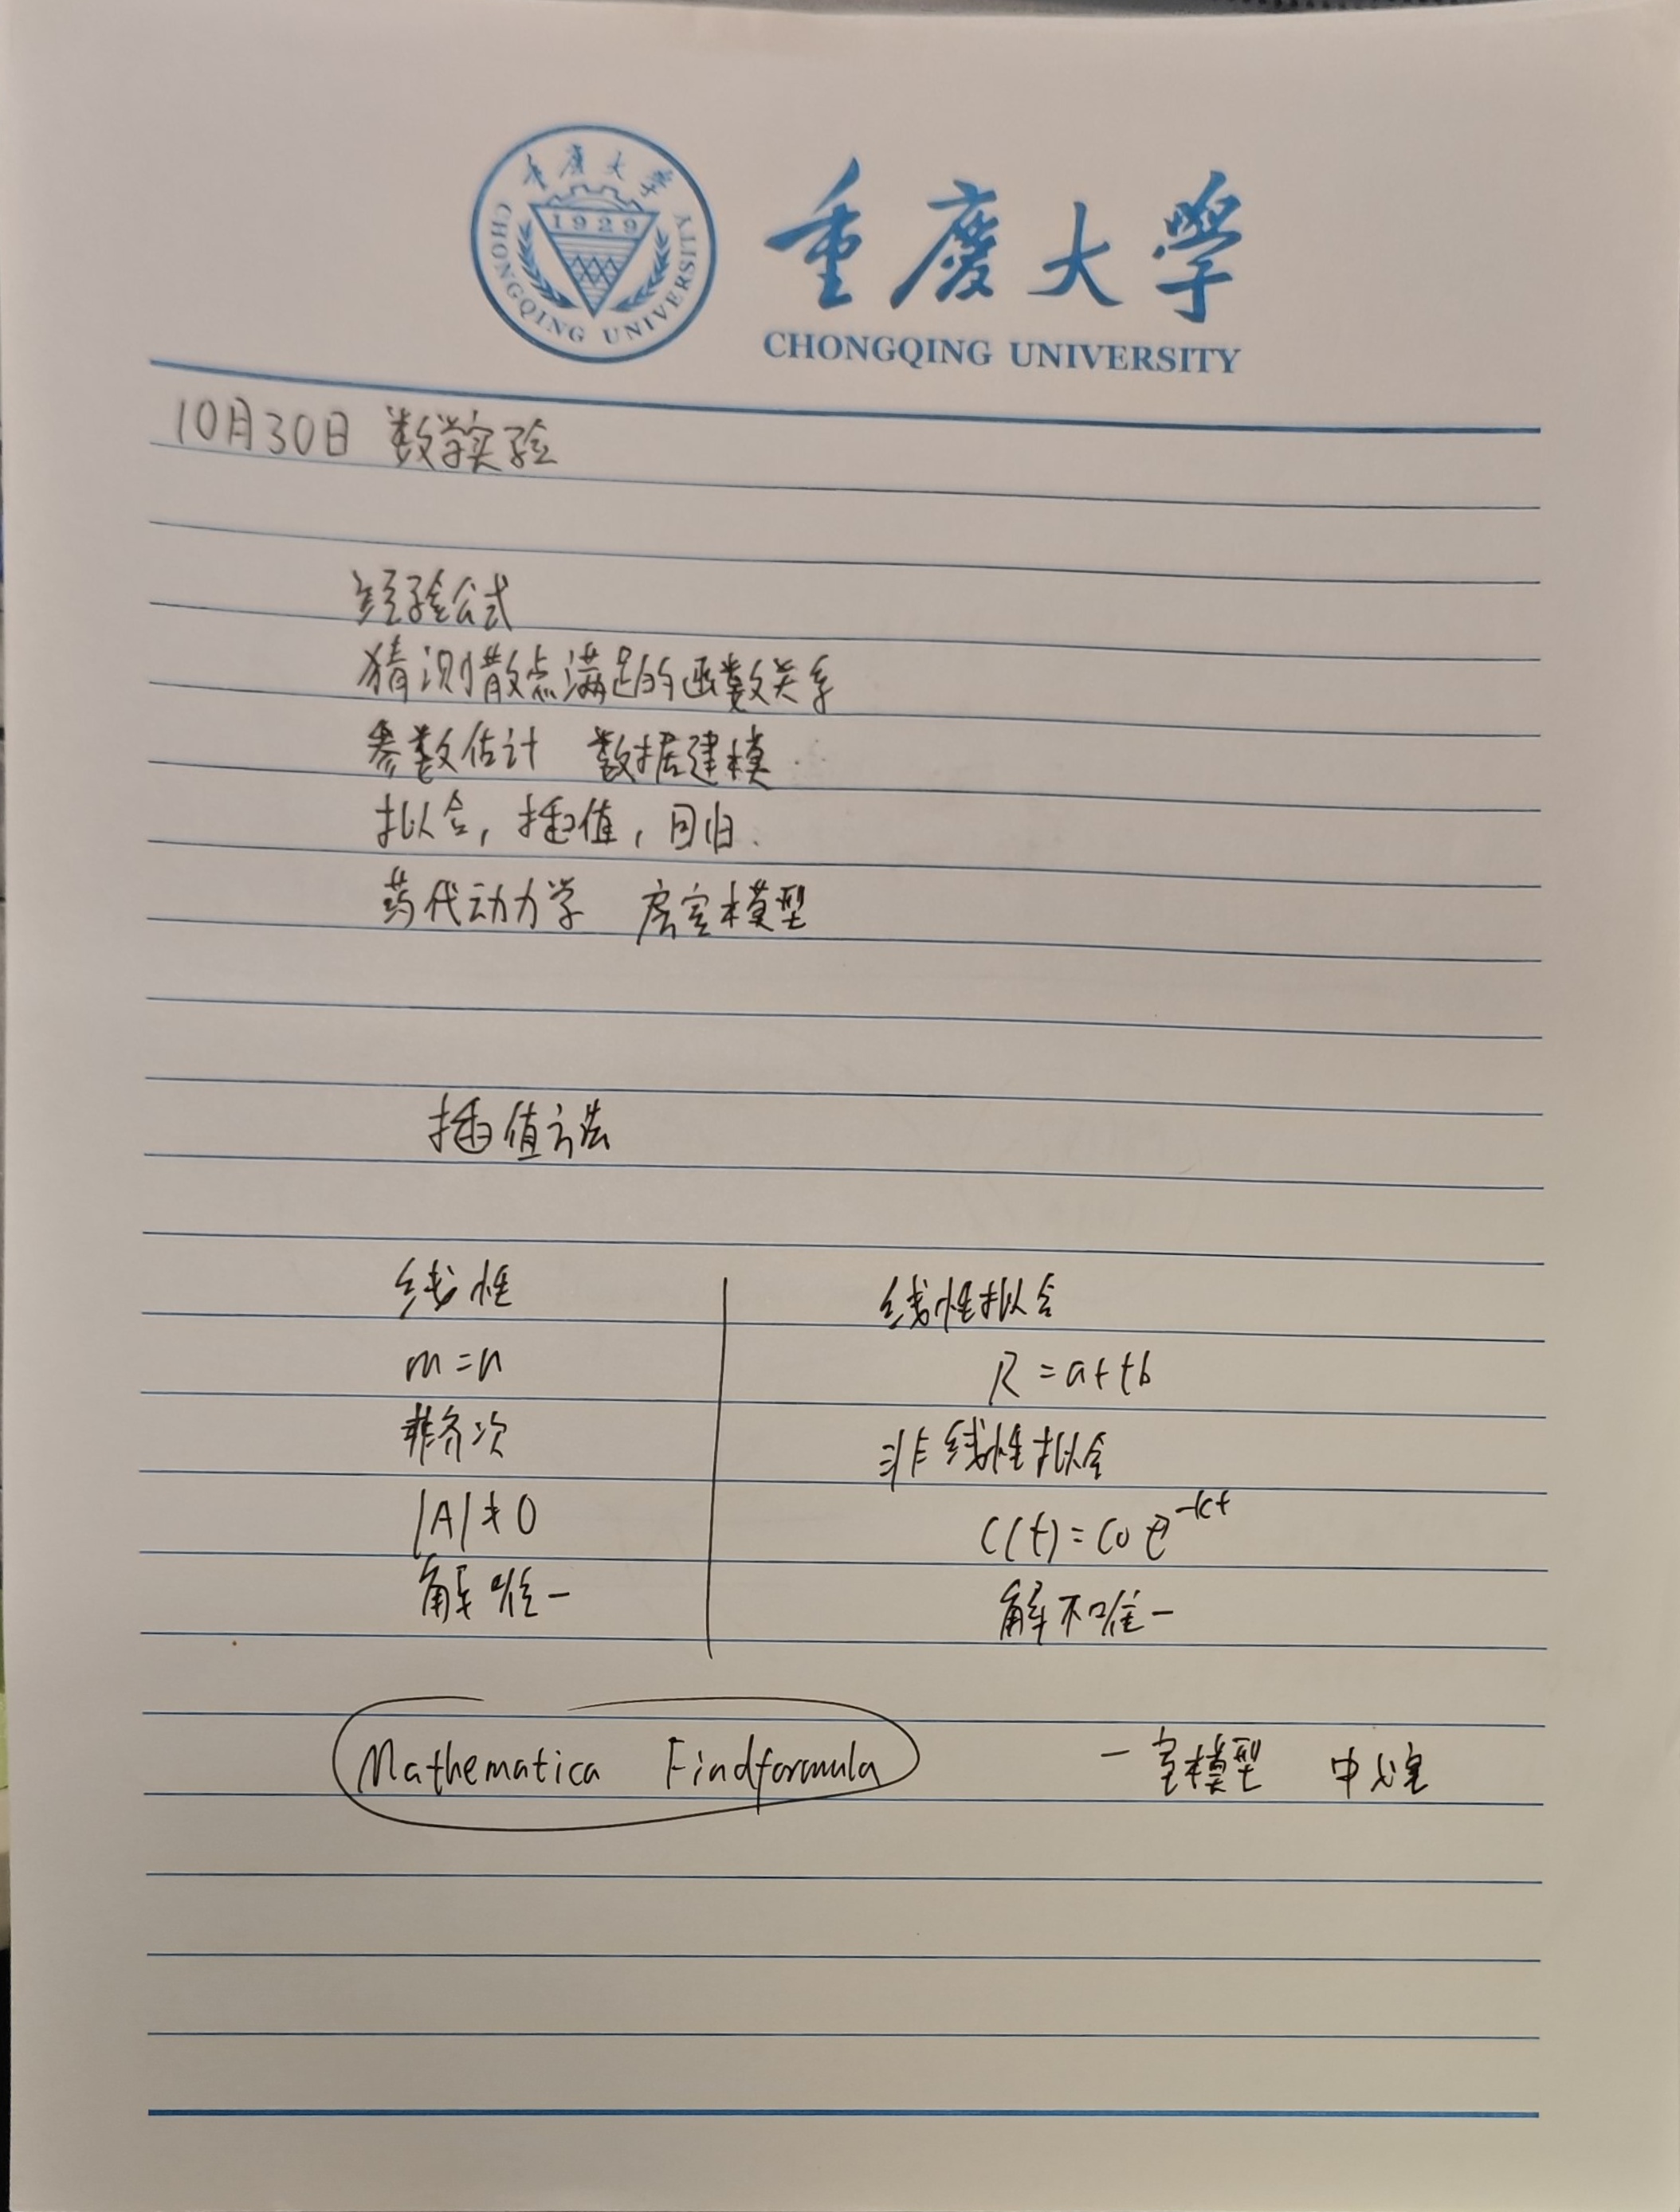 重慶大学
1929
CHONGQING UNIVERSITY
重慶大學
CHONGQING UNIVERSITY
10月30日 数学实验
经验公式
猜测散点满足的函数关系
参数估计 数据建模
拟合, 插值, 回归.
药代动力学 房室模型
插值方法
线性
m=n
非齐次
|A|≠0
解唯一
线性拟合
R=at+b
非线性拟合
C(t)=C0 e^-kt
解不唯一
Mathematica Findformula
一室模型 中心室